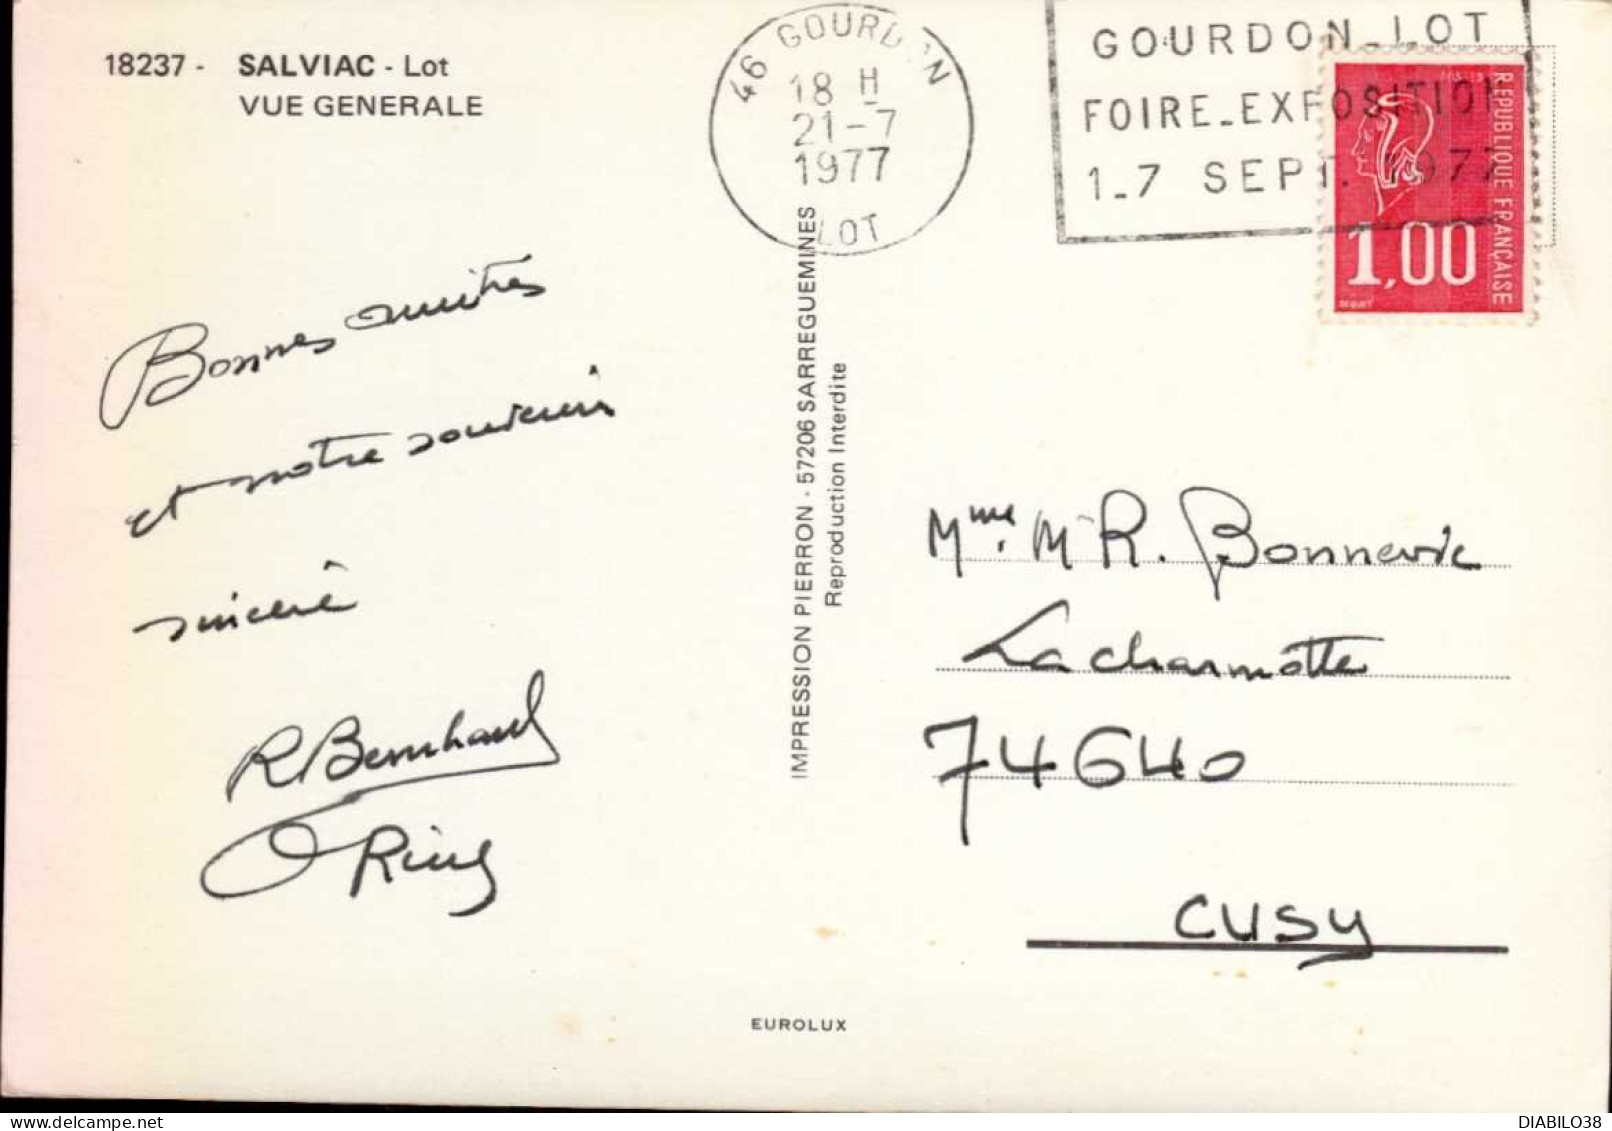 18237 - SALVIAC - Lot
VUE GENERALE
46 GOURDON
18 H
21-7
1977
LOT
GOURDON_LOT
FOIRE_EXPOSITION
1_7 SEPT. 1977
REPUBLIQUE FRANÇAISE
1,00
Bonnes amitiés
et notre souvenir
sincère
R Bernhard
IMPRESSION PIERRON - 57206 SARREGUEMINES
Reproduction Interdite
Mme. M R. Bonnevie
La charmotte
74640
CUSY
EUROLUX
DIABILO38